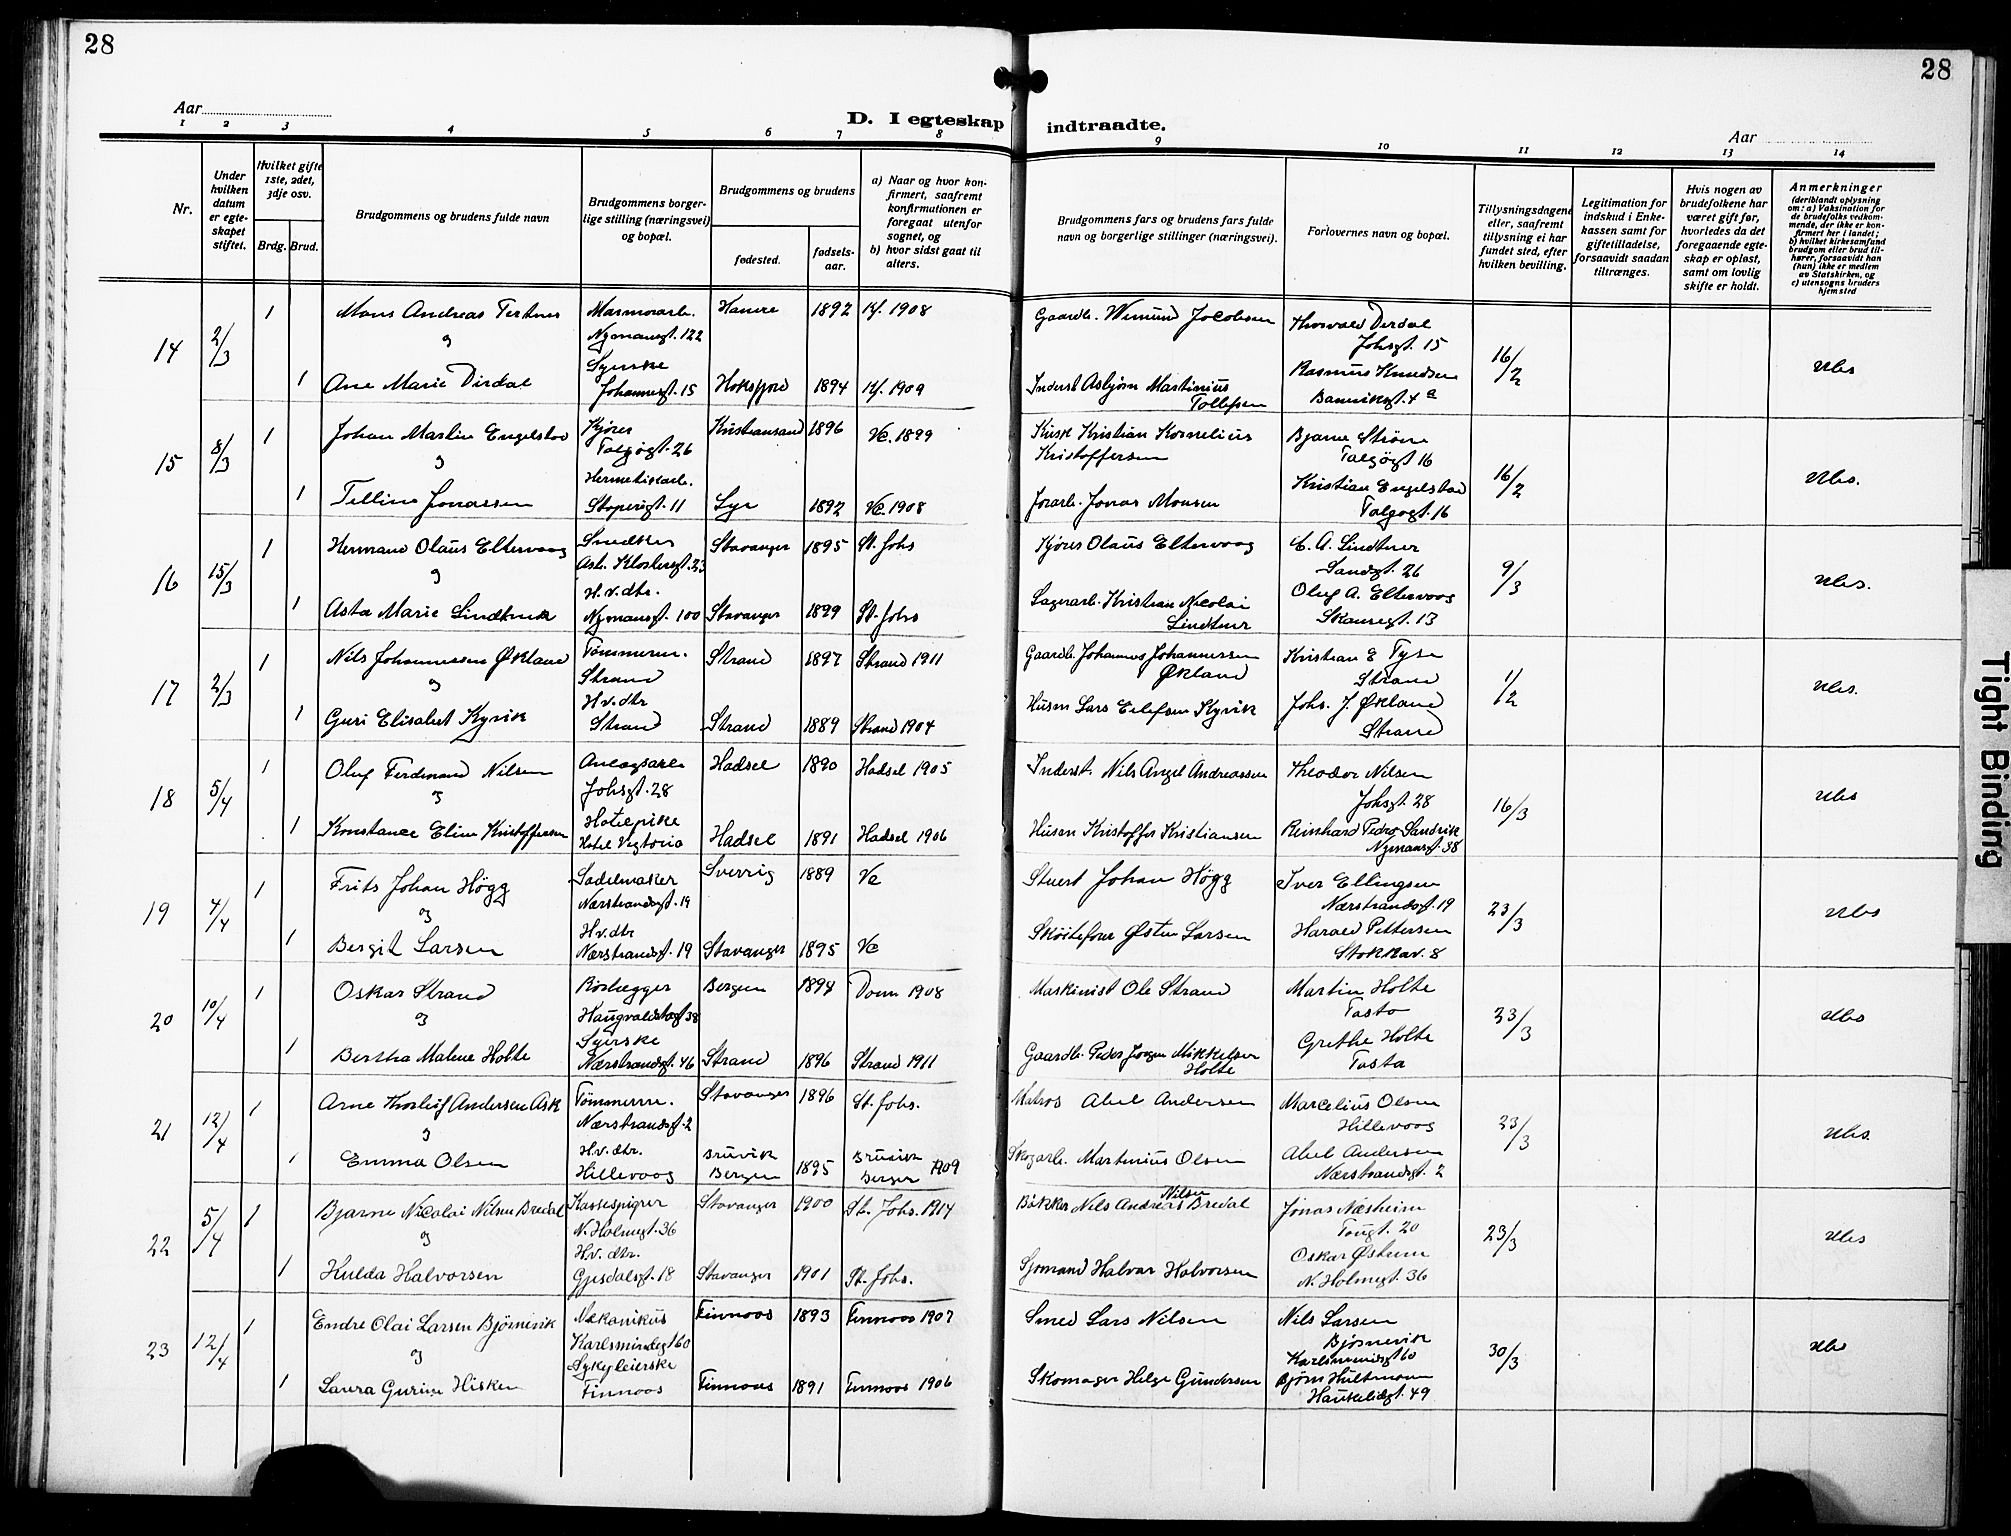 28
28
Aar
D. I egteskap indtraadte.
Aar
1 2 3 4 5 6 7 8 9 10 11 12 13 14
Nr.
Under hvilken datum er egteskapet stiftet.
Hvilket gifte 1ste, 2det, 3dje osv.
Brdg. Brud.
Brudgommens og brudens fulde navn
Brudgommens borgerlige stilling (næringsvei) og bopæl.
Brudgommens og brudens
fødested.
fødselsaar.
a) Naar og hvor konfirmert, saafremt konfirmationen er foregaat utenfor sognet, og
b) hvor sidst gaat til alters.
Brudgommens fars og brudens fars fulde navn og borgerlige stillinger (næringsvei).
Forlovernes navn og bopæl.
Tillysningsdagene eller, saafremt tillysning ei har fundet sted, efter hvilken bevilling.
Legitimation for indskud i Enkekassen samt for giftetilladelse, forsaavidt saadan tiltrænges.
Hvis nogen av brudefolkene har været gift før, hvorledes da det foregaaende egteskap er opløst, samt om lovlig skifte er holdt.
Anmerkninger (deriblandt oplysning om: a) Vaksination for de brudefolks vedkommende, der ikke er konfirmert her i landet; b) hvilket kirkesamfund brudgom eller brud tilhører, forsaavidt han (hun) ikke er medlem av Statskirken, og c) utensogns bruders hjemsted
14 2/3 1 Mons Andreas Tertnes Marmorarb. Nymansgt. 122 1892 Kf. 1908 Gaardb. Jocobsen Thorvald Dirdal Johsgt. 15 16/2
og
1 Ane Marie Dirdal Syerske Johannesgt. 15 1894 Kf. 1909 Inderst Asbjørn Martinius Tollefsen Rasmus Knudsen
15 8/3 1 Johan Martin Engelstad Kjører Talgøgt. 26 Kristiansand 1896 Ve. 1899 Kusk Kristian Kornelius Kristoffersen Bjarne Strøm Talgøgt 16 16/2
og
1 Telline Jonassen Hermetikarb. 11 1892 Ve. 1908 Jorarb. Jonas Monsen Kristian Engelstad Talgøgt. 16
16 15/3 1 Hermand Olaus Eltervaag Snedker Ast. Klostergt. 23 Stavanger 1895 St. Johs Kjører Olaus Eltervaag C. A. Lindtner Sandgt. 26 9/3
og
1 Asta Marie Lindtner H.v.dtr. Nymansgt. 100 Stavanger 1899 St. Johs Sagarb. Kristian Nicolai Lindtner Oluf A. Eltervaag Skansegt. 13
17 2/3 1 Nils Johannessen Økland Tømmerm. Strand Strand 1897 Strand 1911 Gaardb. Johannes Johannessen Økland Kristian E Tysn Strand 1/2
og
1 Guri Elisabet Kyvik H.v.dtr Strand Strand 1889 Strand 1904 Husm Lars Eilefsen Kyvik Johs. J. Økland Strand
18 5/4 1 Oluf Ferdinand Nilsen Johsgt. 28 Hadsel 1890 Hadsel 1905 Inderst. Nils Angel Andreassen Theodor Nilsen Johsgt. 28 16/3
og
1 Konstance Eline Kristoffersen Hotelpike Hotel Viktoria Hadsel 1891 Hadsel 1906 Husm Kristoffer Kristiansen Reinhard Pedro Sandvik Nymansgt. 38
19 4/4 1 Frits Johan Högg Sadelmaker Nærstrandsgt. 19 Sverrig 1889 Ve Stuert Johan Högg Iver Ellingsen Nærstrandsgt. 19 23/3
og
1 Bergit Larsen H.v.dtr Nærstrandsgt. 19 Stavanger 1895 Ve Skøitefører Østen Larsen Harald Pettersen Stokkav. 8
20 10/4 1 Oskar Strand Rørlægger Haugvaldstadgt 38 Bergen 1894 Dom 1908 Maskinist Ole Strand Martin Holte Tasta 23/3
og
1 Bertha Malene Holte Syerske Nærstrandsgt. 46 Strand 1896 Strand 1911 Gaardb. Peder Jørgen Mikkelsen Holte Grethe Holte Tasta
21 12/4 1 Arne Thorleif Andersen Ask Tømmerm. Nærstrandsgt. 2 Stavanger 1896 St. Johs. Matros Abel Andersen Marcelius Olsen Hillevaag 23/3
og
1 Emma Olsen H.v.dtr. Hillevaag Bruvik Bergen 1895 Bruvik Bergen 1909 Skogarb. Martinius Olsen Abel Andersen Nærstrandsgt. 2
22 5/4 1 Bjarne Nicolai Nilsen Bredal Kassespigrer N. Holmegt. 36 Stavanger 1900 St. Johs. 1914 Bøkker Nils Andreas Nilsen Bredal Jonas Næsheim Tougt. 20 23/3
og
1 Hulda Halvorsen H.v. dtr. Gjesdalsgt. 18 Stavanger 1901 St. Johs. Sjømand Halvar Halvorsen Oskar Østrem N. Holmegt. 36
23 12/4 1 Endre Olai Larsen Bjørnevik Mekanikus Karlsmindegt 60 Finnøos 1893 Finnøos 1907 Smed Lars Nilsen Nils Larsen Bjørnevik Karlsmindegt 60 30/3
og
1 Laura Gurine Hisken Sykepleierske Finnøos Finnøos 1891 Finnøos 1906 Skomager Helge Gundersen Bjørn Hultmann Haukeligt. 49
Tight Binding